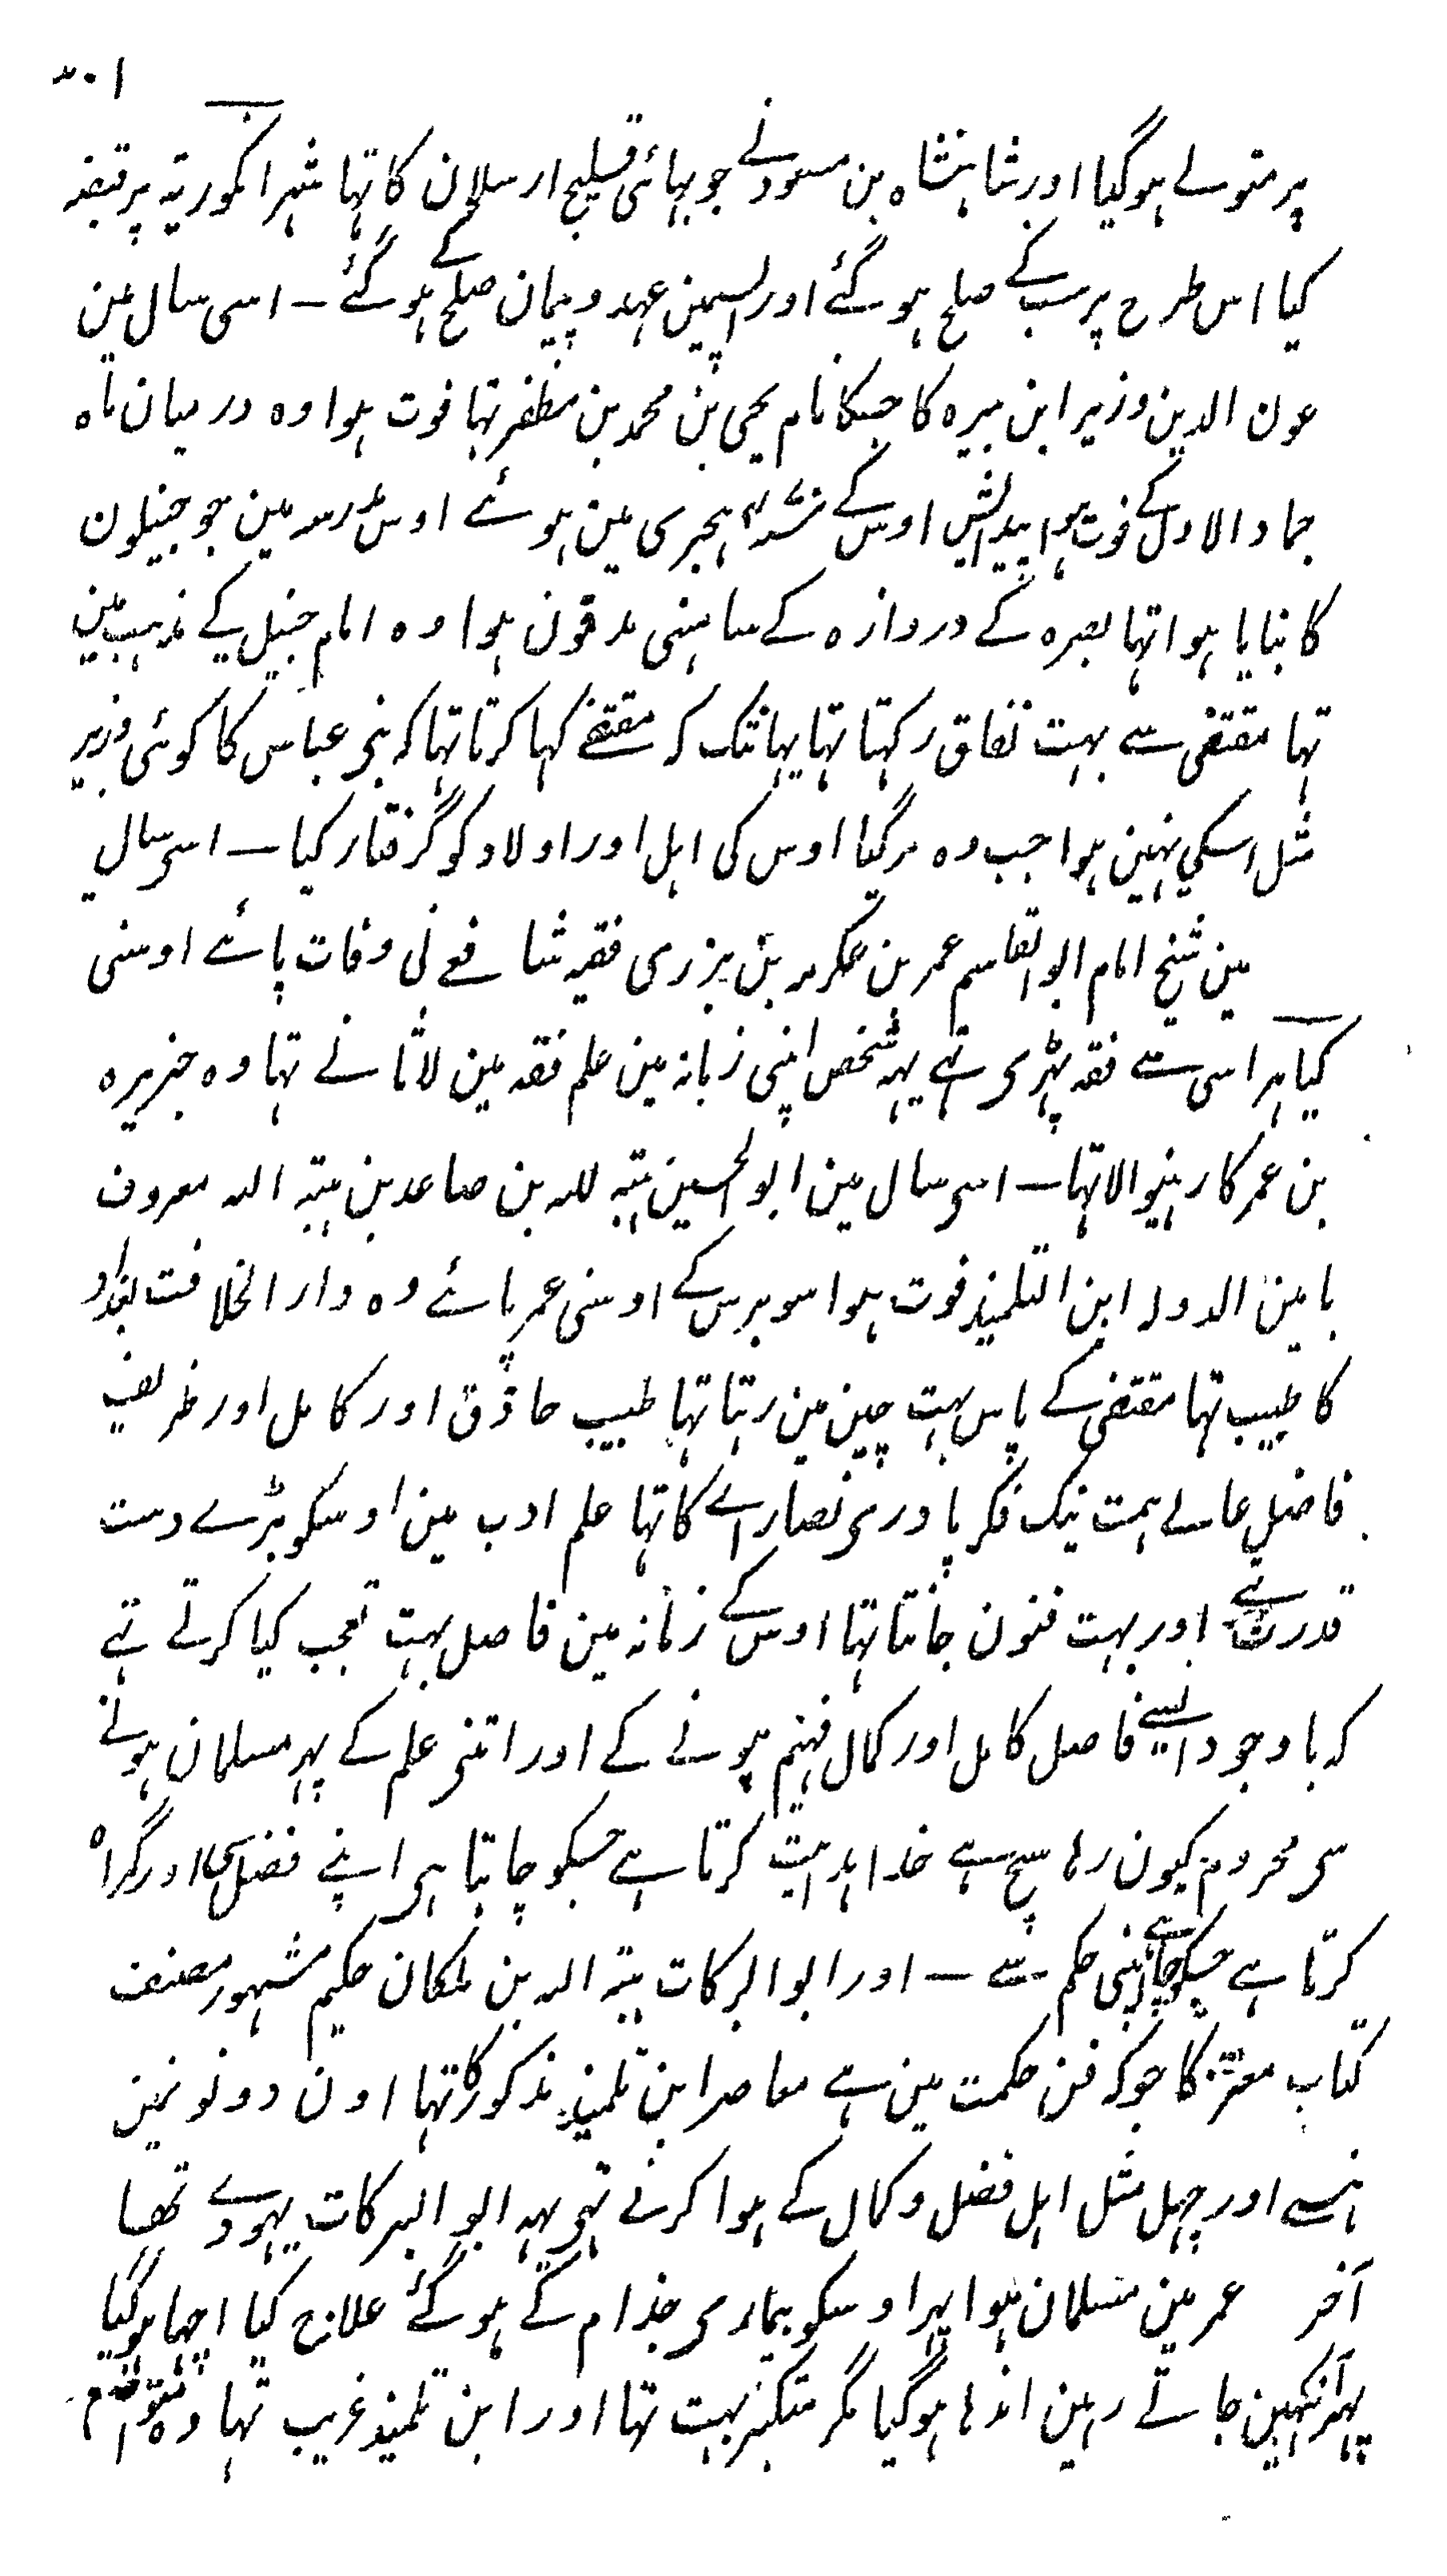 پر متولے ہوگیا اور شاہنشاہ بن مسعود نے جو بہائی قلیج ارسلان کا تہا شہر انکوریتہ پر قبضہ
کیا اس طرح پر سب کے صلح ہو گئے اور اسپمین عہد و پیمان صلح کے ہو گئے — اسی سال مین
عون الدین وزیر ابن ہبیرہ کا جسکا نام یحی بن محمد بن مظفر تہا فوت ہوا وہ درمیان ماہ
جماد الاول کے فوت ہوا پیدائش اوس کے ہجری مین ہوئے اوس مدرسہ مین جو حنبلون
کا بنایا ہوا تہا بصرہ کے دروازہ کے سامہنی مدفون ہوا وہ امام حنبل کے مذہب مین
تہا مقتفی سے بہت نفاق رکہتا تہا یہانتک کہ مقتفے کہا کرتا تہا کہ بنی عباس کا کوئی وزیر
مثل اسکي نہین ہوا جب وہ مرگیا اوس کی اہل اور اولاد کو گرفتار کیا — اسی سال
مین شیخ امام ابو القاسم عمر بن عکرمہ بن بزری فقیہ شافعے نی وفات پائے اوسنی
کیاہراسی سے فقہ پڑہی تہے یہہ شخص اپنی زمانہ مین علم فقہ مین لاثانے تہا وہ جزیرہ
بن عمر کا رہنیوالا تہا — اسی سال مین ابو الحسین ہبتہ للہ بن صاعد بن ہبتہ اللہ معروف
بامین الدولہ ابن التلمیذ فوت ہوا سو برس کے اوسنی عمر پائے وہ دار الخلافت بغداد
کا طبیب تہا مقتفی کے پاس بہت چین مین رہتا تہا طبیب حاذق اور کامل اور ظریف
فاضل عالے ہمت نیک فکر پادری نصاراے کا تہا علم ادب مین اوسکو بڑے دست
قدرت تہے اور بہت فنون جانتا تہا اوس کے زمانہ مین فاصل بہت تعجب کیا کرتے تہے
کہ باوجود ایسے فاصل کامل اور کمال فہیم ہونے کے اور اتنی علم کے پہر مسلمان ہونے
سی محروم کیون رہا سچ ہے خدا ہدایت کرتا ہے جسکو چاہتا ہی اپنے فضل سی اور گمراہ
کرتا ہے جسکو چاہے اپنی حکم سے — اور ابو البرکات ہبتہ اللہ بن ملکان حکیم مشہور مصنف
کتاب معتبر کا جو کہ فن حکمت مین ہے معاصر ابن تلمیذ مذکور کا تہا اون دونو نمین
ہنسے اور چہل مثل اہل فضل و کمال کے ہوا کرنے تہی یہہ ابو البرکات یہودے تھا
آخر عمر مین مسلمان ہوا پہر اوسکو بیماری جذام کے ہو گئے علاج کیا اچہا ہو گیا
پہر آنکہین جاتے رہین اندہا ہو گیا مگر متکبر بہت تہا اور ابن تلمیذ غریب تہا وہ متواضع